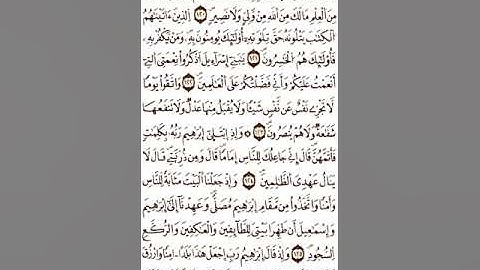 مِنَ ٱلْعِلْمِ مَا لَكَ مِنَ ٱللَّهِ مِنْ وَلِيٍّ وَلَا نَصِيرٍ ١٢٠ ٱلَّذِينَ ءَاتَيْنَٰهُمُ
ٱلْكِتَٰبَ يَتْلُونَهُۥ حَقَّ تِلَاوَتِهِۦ أُوْلَٰٓئِكَ يُومِنُونَ بِهِۦ وَمَنْ يَكْفُرْ بِهِۦ
فَأُوْلَٰٓئِكَ هُمُ ٱلْخَٰسِرُونَ ١٢١ يَٰبَنِىٓ إِسْرَآءِيلَ ٱذْكُرُوا۟ نِعْمَتِىَ ٱلَّتِىٓ
أَنْعَمْتُ عَلَيْكُمْ وَأَنِّى فَضَّلْتُكُمْ عَلَى ٱلْعَٰلَمِينَ ١٢٢ وَٱتَّقُوا۟ يَوْمًا
لَا تَجْزِى نَفْسٌ عَن نَّفْسٍ شَيْـًٔا وَلَا يُقْبَلُ مِنْهَا عَدْلٌ وَلَا تَنفَعُهَا
شَفَٰعَةٌ وَلَا هُمْ يُنصَرُونَ ١٢٣ ۞ وَإِذِ ٱبْتَلَىٰٓ إِبْرَٰهِيمَ رَبُّهُۥ بِكَلِمَٰتٍ
فَأَتَمَّهُنَّ قَالَ إِنِّى جَاعِلُكَ لِلنَّاسِ إِمَامًا قَالَ وَمِن ذُرِّيَّتِى قَالَ لَا
يَنَالُ عَهْدِى ٱلظَّٰلِمِينَ ١٢٤ وَإِذْ جَعَلْنَا ٱلْبَيْتَ مَثَابَةً لِّلنَّاسِ
وَأَمْنًا وَٱتَّخَذُوا۟ مِن مَّقَامِ إِبْرَٰهِيمَ مُصَلًّى وَعَهِدْنَآ إِلَىٰٓ إِبْرَٰهِيمَ
وَإِسْمَٰعِيلَ أَن طَهِّرَا بَيْتِىَ لِلطَّآئِفِينَ وَٱلْعَٰكِفِينَ وَٱلرُّكَّعِ
ٱلسُّجُودِ ١٢٥ وَإِذْ قَالَ إِبْرَٰهِيمُ رَبِّ ٱجْعَلْ هَٰذَا بَلَدًا ءَامِنًا وَٱرْزُقْ